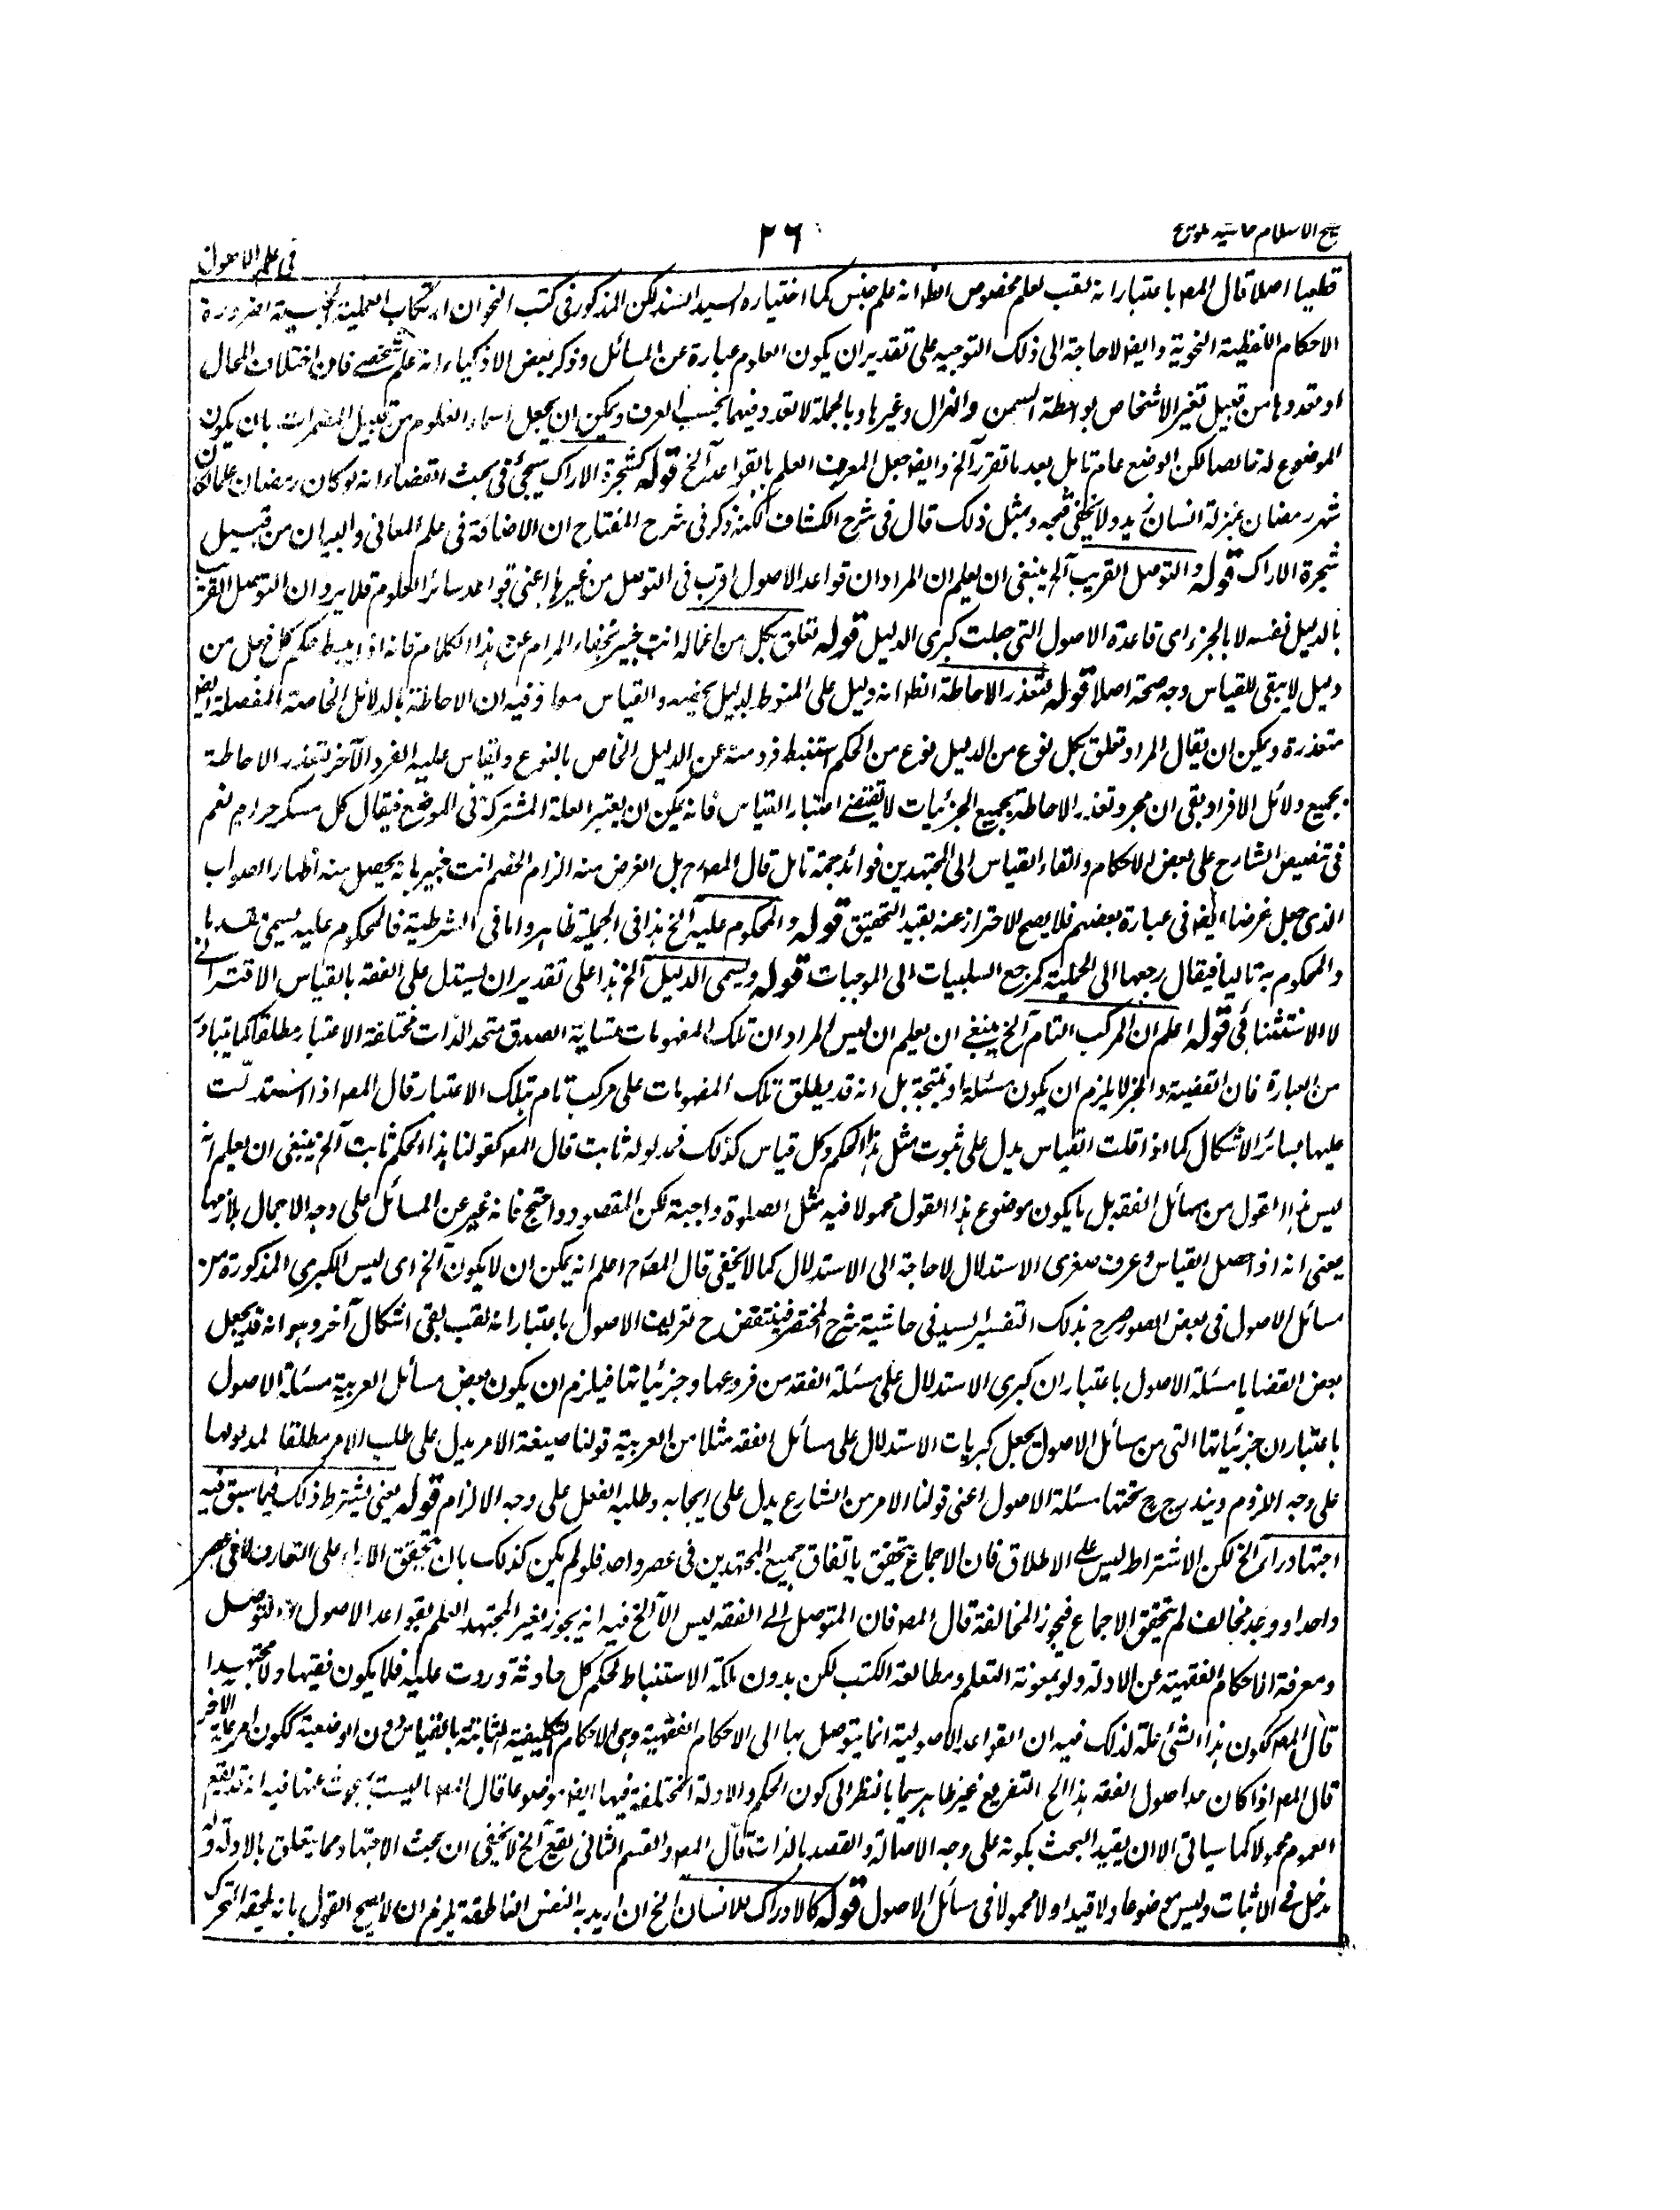 شيخ الاسلام حاشيه تلويح
٢٦
فى علم الاصول
قطعيا اصلا قال المص باعتبار انه لقب لعلم مخصوص الظ انه علم جنس كما اختياره السيد السند لكن المذكور فى كتب النحو ان ارتكاب العلمية الجنسية لضرورة
الاحكام اللفظية النحوية وايضا لا حاجة الى ذلك التوجيه على تقدير ان يكون العلوم عبارة عن المسائل وذكر بعض الاذكياء انه علم شخصى فان اختلاف المحال
او تعددها من قبيل تغير الاشخاص بواسطة السمن والهزال وغيرها وبالجملة لا تعدد فيها بحسب العرف ويمكن ان يجعل اسماء العلوم من قبيل المضمرات بان يكون
الموضوع له خاصا لكن الوضع عام تامل بعد ما تقرر آلخ وايضا جعل المعرف العلم بالقواعد آلخ قوله كشجرة الاراك سيجئ فى بحث القضاء انه لو كان رمضان علما لكان
شهر رمضان بمنزلة انسان زيد ولا يخفى قبحه ومثل ذلك قال فى شرح الكشاف لكنه ذكر فى شرح المفتاح ان الاضافة فى علم المعانى والبيان من قبيل
شجرة الاراك قوله والتوصل القريب آلخ ينبغى ان يعلم ان المراد ان قواعد الاصول اقرب فى التوصل من غيرها اعنى قواعد سائر العلوم فلا يرد ان التوصل القريب
بالدليل نفسه لا بالجزء اى قاعدة الاصول التى جعلت كبرى الدليل قوله تعلق بكل من اعماله انت خبير بخفاء المرام عن هذا الكلام فانه اذا يسبط حكم كل فعل من
دليل لا يبقى للقياس وجه صحة اصلا قوله لتعذر الاحاطة الظ انه دليل على المنوط بدليل يخصه والقياس معا وفيه ان الاحاطة بالدلائل الخاصة المفصلة ايضا
متعذرة ويمكن ان يقال المراد تعلق بكل نوع من الدليل نوع من الحكم استنبط فرد منه عن الدليل الخاص بالنوع ويقاس عليه الفرد الآخر لتعذر الاحاطة
بجميع دلائل الافراد بقى ان مجرد تعذر الاحاطة بجميع الجزئيات لا تقتضى اعتبار القياس فانه يمكن ان يعتبر العلة المشتركة فى الموضع فيقال كل مسكر حرام نعم
فى تنصيص الشارع على بعض الاحكام والقاء القياس الى المجتهدين فوائد جمة تامل قال المص بل الغرض منه الزام الخصم انت خبير بانه يحصل منه اظهار الصواب
الذى جعل غرضا ايضا فى عبارة بعضهم فلا يصح الاحتراز عنه بقيد التحقيق قوله والمحكوم عليه آلخ هذا فى الحملية ظاهر واما فى الشرطية فالمحكوم عليه يسمى مقدما
والمحكوم به تاليا فيقال رجعها الى الحملية كرجع السلبيات الى الموجبات قوله ويسمى الدليل آلخ هذا على تقدير ان يستدل على الفقه بالقياس الاقترانى
لا الاستثنائى قوله اعلم ان المركب التام آلخ ينبغى ان يعلم ان ليس المراد ان تلك المفهومات متساوية الصدق متحد الذات مختلفة الاعتبار مطلقا كما يتبادر
من العبارة فان القضية والخبر لا يلزم ان يكون مسئلة او نتيجة بل انه قد يطلق تلك المفهومات على مركب تام بتلك الاعتبار قال المص اذا استدللت
عليها بسائر الاشكال كما اذا قلت القياس يدل على ثبوت مثل هذا الحكم وكل قياس كذلك فمدلوله ثابت قال المص كقولنا هذا الحكم ثابت آلخ ينبغى ان يعلم انه
ليس هذا القول من مسائل الفقه بل ما يكون موضوع هذا القول محمولا فيه مثل الصلوة واجبة لكن المقصود واضح فانه غير عن المسائل على وجه الاجمال بلازمها
يعنى انه اذا حصل القياس وعرف صغرى الاستدلال لا حاجة الى الاستدلال كما لا يخفى قال المص اعلم انه يمكن ان لا يكون آلخ اى ليس الكبرى المذكورة من
مسائل الاصول فى بعض الصور صرح بذلك التفسير السيد فى حاشية شرح المختصر فينتقض ح تعريف الاصول باعتبار انه لقب بقى اشكال آخر وهو انه قد يجعل
بعض القضايا مسئلة الاصول باعتبار ان كبرى الاستدلال على مسئلة الفقه من فروعها وجزئياتها فيلزم ان يكون بعض مسائل العربية مسئلة الاصول
باعتبار ان جزئياتها التى من مسائل الاصول يجعل كبريات الاستدلال على مسائل الفقه مثلا من العربية قولنا صيغة الامر يدل على طلب الامر مطلقا لمدلولها
على وجه اللزوم ويندرج ح تحتها مسئلة الاصول اعنى قولنا الامر من الشارع يدل على ايجابه وطلبه الفعل على وجه الالزام قوله يعنى يشترط ذلك فيما سبق فيه
اجتهاد رائ آلخ لكن الاشتراط ليس على الاطلاق فان الاجماع يتحقق باتفاق جميع المجتهدين فى عصر واحد فلو لم يكن كذلك بان يتحقق الاراء على التعارف لا فى عصر
واحد او وجد مخالف لم يتحقق الاجماع فيجوز المخالفة قال المص فان المتوصل الى الفقه ليس الا آلخ فيه انه يجوز لغير المجتهد العلم بقواعد الاصول والتوصل
ومعرفة الاحكام الفقهية عن الادلة ولو بمعونة التعلم ومطالعة الكتب لكن بدون ملكة الاستنباط لحكم كل حادثة وردت عليه فلا يكون فقيها ولا مجتهدا
قال المص ككون هذا الشئ علة لذلك فيه ان القواعد الاصولية انما يتوصل بها الى الاحكام الفقهية وهى الاحكام التكليفية الثابتة بالقياس دون الوضعية ككون امر علة الآخر
قال المص اذا كان حد اصول الفقه هذا الخ التفريع غير ظاهر سيما بالنظر الى كون الحكم والادلة المختلفة فيها ايضا موضوعا قال المص ما ليست بمبحوث عنها فيه انه قد يقع
العموم محمولا كما سياتى الا ان يقيد البحث بكونه على وجه الاصالة والقصد بالذات قال المص والقسم الثانى يقع آلخ لا يخفى ان بحث الاجتهاد مما يتعلق بالادلة وله
دخل فى الاثبات وليس موضوعا ولا قيدا ولا محمولا فى مسائل الاصول قوله كالادراك للانسان الخ ان اريد به النفس الناطقة يلزم ان لا يصح القول بانه يلحقه التحرك